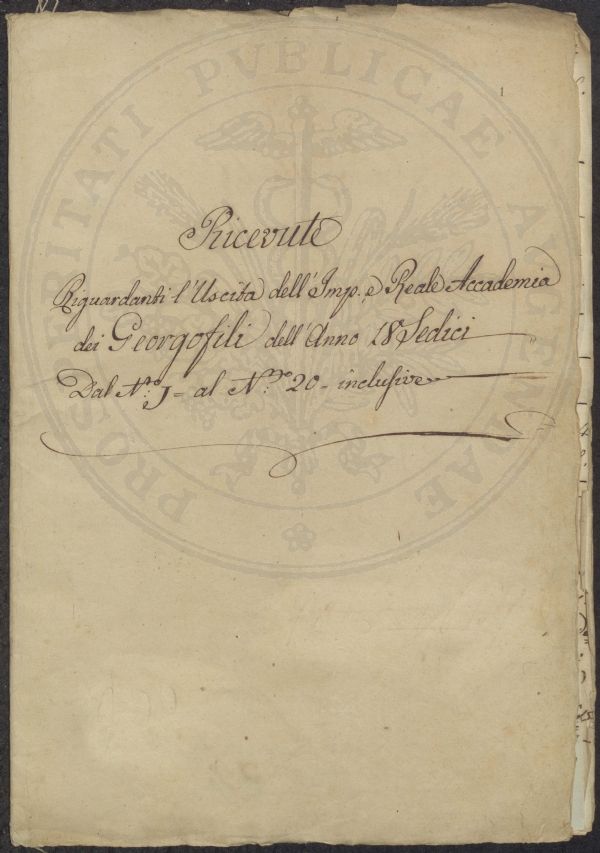 1
Ricevute
Riguardanti l'Uscita dell'Imp. e Reale Accademia
dei Georgofili dell'Anno 18Sedici
Dal N.ro 1= al N.ro 20= inclusive
PROSPERITATI PVBLICAE AVGENDAE